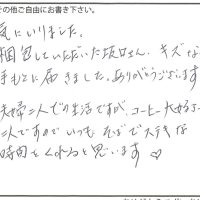 その他ご自由にお書き下さい。
気にいりました。
梱包していただいた坂口さん、キズな
手もとに届きました。ありがとうございます
夫婦二人での生活ですが、コーヒー大好き
二人ですので いつも そばでステキな
時間をくれると思います♡